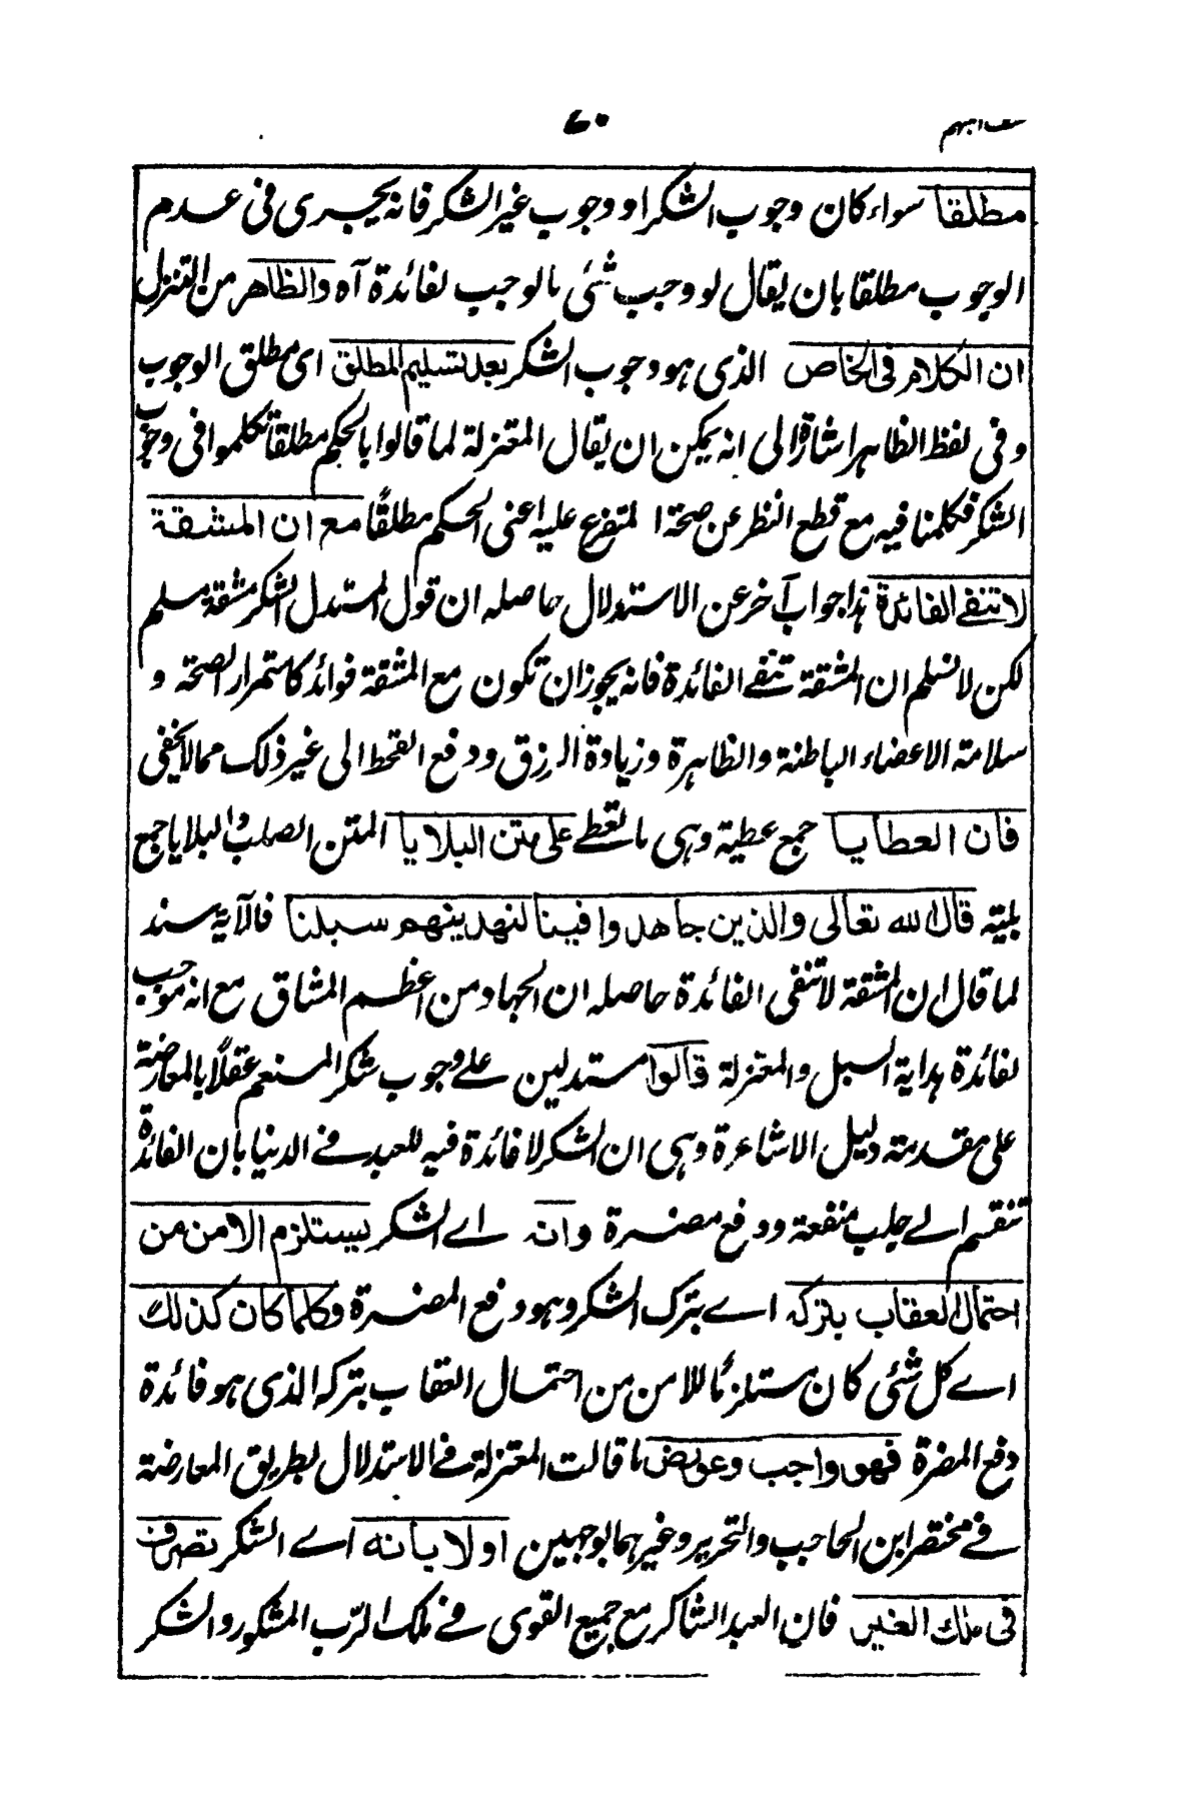 ٧٠
مطلقا سواء كان وجوب الشكر او وجوب غير الشكر فانه يجرى فى عدم
الوجوب مطلقا بان يقال لو وجب شئى مالوجب لفائدة آه والظاهر من التنزل
ان الكلام فى الخاص الذى هو وجوب الشكر بعد تسليم المطلق اى مطلق الوجوب
وفى لفظ الظاهر اشارة الى انه يمكن ان يقال المعتزلة لما قالوا بالحكم مطلقا تكلموا فى وجوب
الشكر فكلمنا فيه مع قطع النظر عن صحة المتفرع عليه اعنى الحكم مطلقًا مع ان المشقة
لا تنفے الفائدة هذا جواب آخر عن الاستدلال حاصله ان قول المستدل الشكر مشقة مسلم
لكن لا نسلم ان المشقة تنفے الفائدة فانه يجوز ان تكون مع المشقة فوائد كاستمرار الصحة و
سلامة الاعضاء الباطنة والظاهرة وزيادة الرزق ودفع القحط الى غير ذلك مما لا يخفى
فان العطايا جمع عطية وهى ما تعطے على متن البلايا المتن الصلب والبلايا جمع
بلية قال الله تعالى والذين جاهدوا فينا لنهدينهم سبلنا فالآية سند
لما قال ان المشقة لا تنفى الفائدة حاصله ان الجهاد من اعظم المشاق مع انه موجب
لفائدة هداية السبل والمعتزلة قالوا مستدلين علے وجوب شكر المنعم عقلًا بالمعارضة
على مقدمة دليل الاشاعرة وهى ان الشكر لا فائدة فيه للعبد فے الدنيا بان الفائدة
تنقسم الے جلب منفعة ودفع مضرة وانه اے الشكر يستلزم الامن من
احتمال العقاب بتركه اے بترك الشكر وهو دفع المضرة وكلما كان كذلك
اے كل شئى كان مستلزمًا للامن من احتمال العقاب بتركه الذى هو فائدة
دفع المضرة فهو واجب وعورض ما قالت المعتزلة فے الاستدلال بطريق المعارضة
فے مختصر ابن الحاجب والتحرير وغيرهما بوجهين اولا بانه اے الشكر تصرف
فى ملك الغير فان العبد الشاكر مع جميع القوى فے ملك الرّب المشكور والشكر